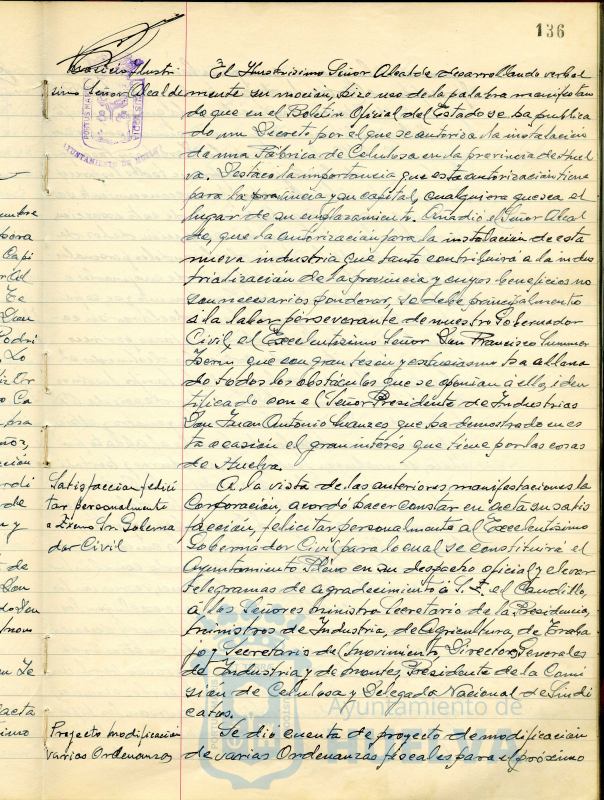 136
Moción Ilustrí
simo Señor Alcalde
El Ilustrísimo Señor Alcalde desarrollando verbal
mente su moción, hizo uso de la palabra manifestan
do que en el Boletín Oficial del Estado se ha publica
do un Decreto por el que se autoriza la instalación
de una Fábrica de Celulosa en la provincia de Huel
va. Destacó la importancia que esta autorización tiene
para la provincia y su capital, cualquiera que sea el
lugar de su emplazamiento. Añadió el Señor Alcal
de, que la autorización para la instalación de esta
nueva industria que tanto contribuirá a la indus
trialización de la provincia y cuyos beneficios no
son necesarios ponderar, se debe principalmente
a la labor perseverante de nuestro Gobernador
Civil, el Excelentísimo Señor Don Francisco Summer
Isern que con gran tesón y entusiasmo ha allana
do todos los obstáculos que se oponían a ello, iden
tificado con el Señor Presidente de Industrias
Don Juan Antonio Suanzes que ha demostrado en es
ta ocasión el gran interés que tiene por las cosas
de Huelva.
Satisfacción felici
tar personalmente
a Excmo Sr. Goberna
dor Civil
A la vista de las anteriores manifestaciones la
Corporación, acordó hacer constar en acta su satis
facción, felicitar personalmente al Excelentísimo
Gobernador Civil para lo cual se constituirá el
Ayuntamiento Pleno en su despacho oficial y elevar
telegramas de agradecimiento a S.E. el Caudillo,
a los Señores Ministro Secretario de la Presidencia,
Ministros de Industria, de Agricultura, de Traba
jo y Secretario del Movimiento, Directores Generales
de Industria y de Montes, Presidente de la Comi
sión de Celulosa y Delegado Nacional de Sindi
catos.
Proyecto modificación
varias Ordenanzas
Se dio cuenta de proyecto de modificación
de varias Ordenanzas fiscales para el próximo
Ayuntamiento de
HUELVA
AYUNTAMIENTO DE HUELVA